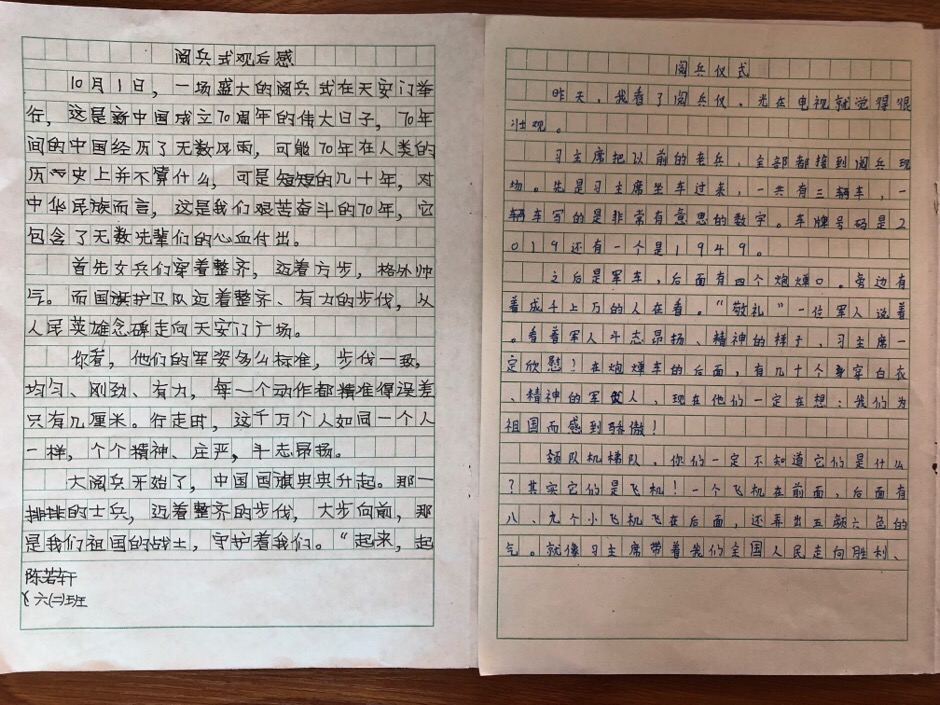 阅兵式观后感
10月1日，一场盛大的阅兵式在天安门举
行，这是新中国成立70周年的伟大日子，70年
间的中国经历了无数风雨，可能70年在人类的
历史上并不算什么，可是短短的几十年，对
中华民族而言，这是我们艰苦奋斗的70年，它
包含了无数先辈们的心血付出。
首先女兵们穿着整齐，迈着方步，格外帅
气。而国旗护卫队迈着整齐、有力的步伐，从
人民英雄念碑走向天安门广场。
你看，他们的军姿多么标准，步伐一致，
均匀、刚劲、有力，每一个动作都精准得误差
只有几厘米。行走时，这千万个人如同一个人
一样，个个精神、庄严，斗志昂扬。
大阅兵开始了，中国国旗央央升起。那一
排排的士兵，迈着整齐的步伐，大步向前，那
是我们祖国的战士，守护着我们。“起来，起
陈若轩
六(二)班
阅兵仪式
昨天，我看了阅兵仪，光在电视就觉得很
壮观。
习主席把以前的老兵，全部都接到阅兵现
场。先是习主席坐车过来，一共有三辆车，一
辆车写的是非常有意思的数字。车牌号码是2
019还有一个是1949。
之后是军车，后面有四个炮弹口。旁边有
着成千上万的人在看。“敬礼”一位军人说着
。看着军人斗志昂扬、精神的样子、习主席一
定欣慰！在炮弹车的后面，有几十个身穿白衣
、精神的军人、现在他们一定在想：我们为
祖国而感到骄傲！
领队机梯队、你们一定不知道它们是什么
？其实它们是飞机！一个飞机在前面，后面有
八、九个小飞机飞在后面，还弄出五颜六色的
气。就像习主席带着我们全国人民走向胜利、